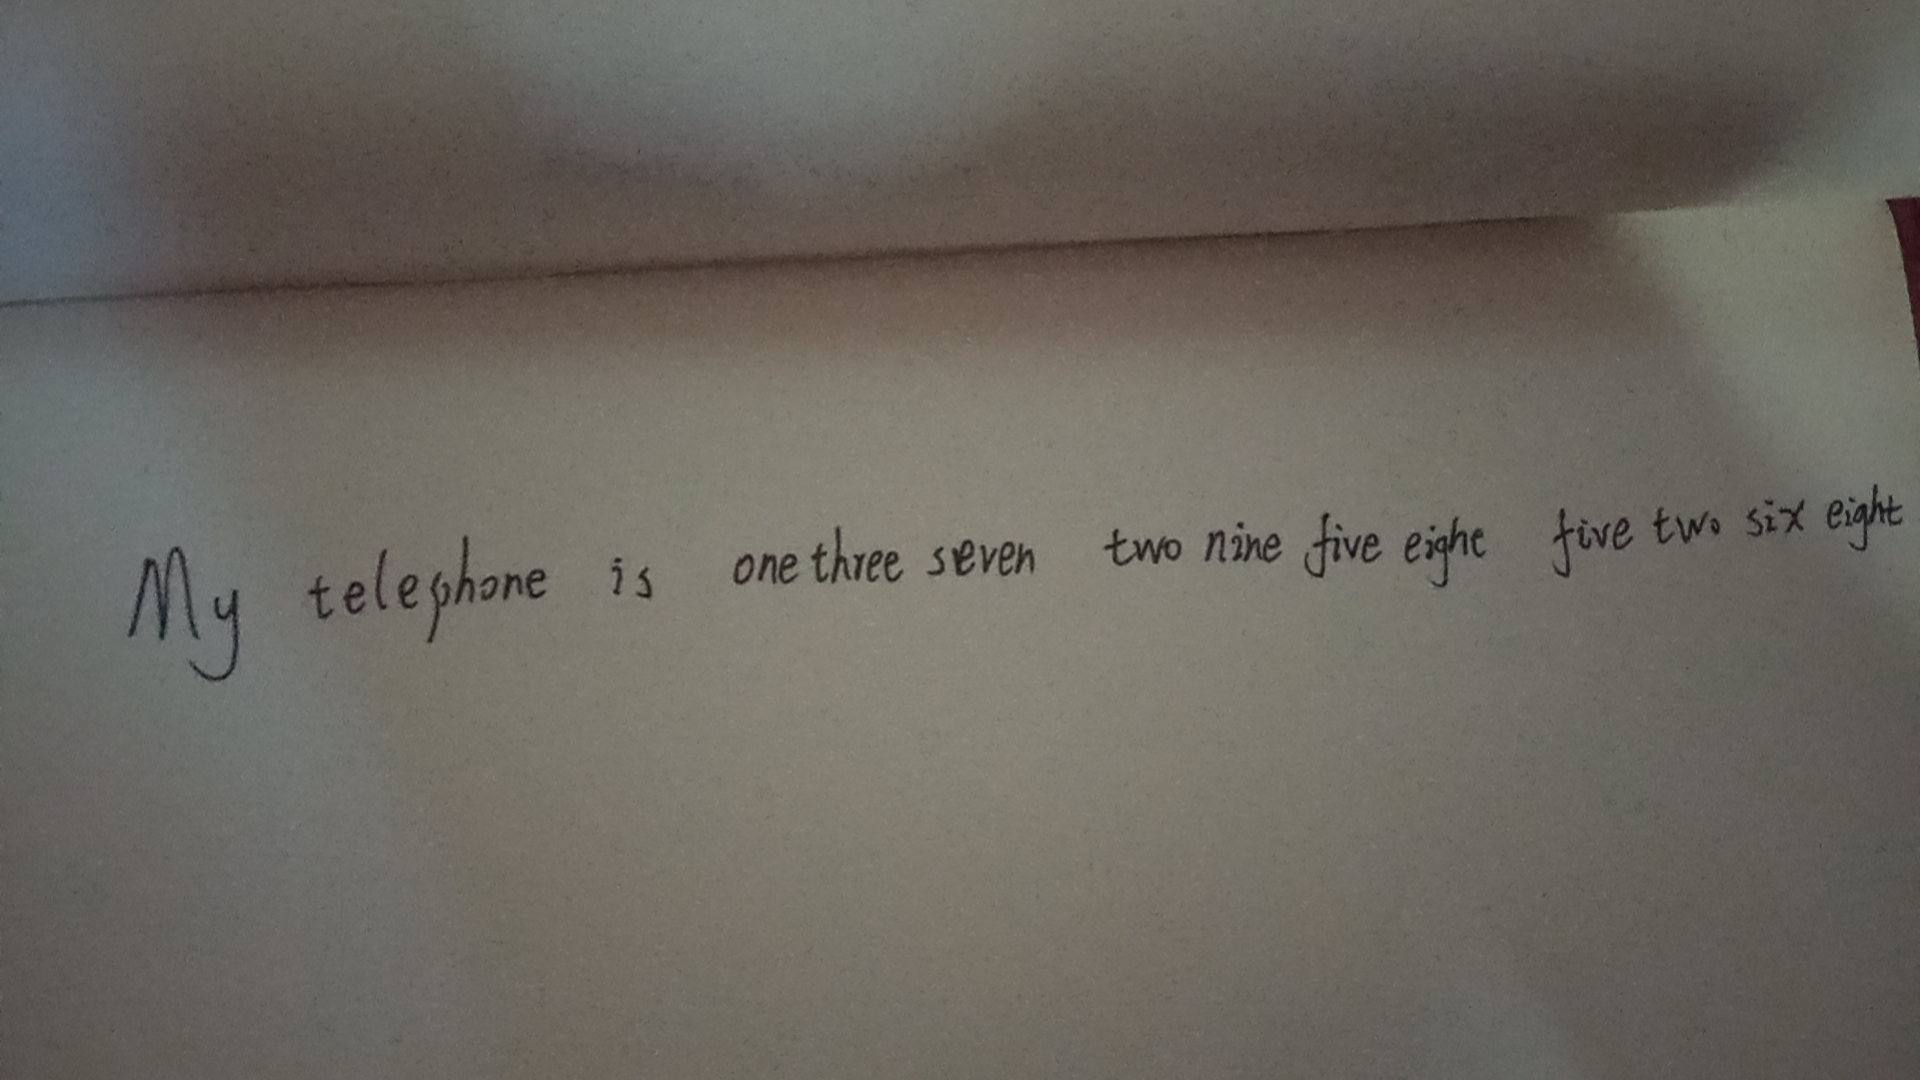 My telephone is one three seven two nine five eighe five two six eight